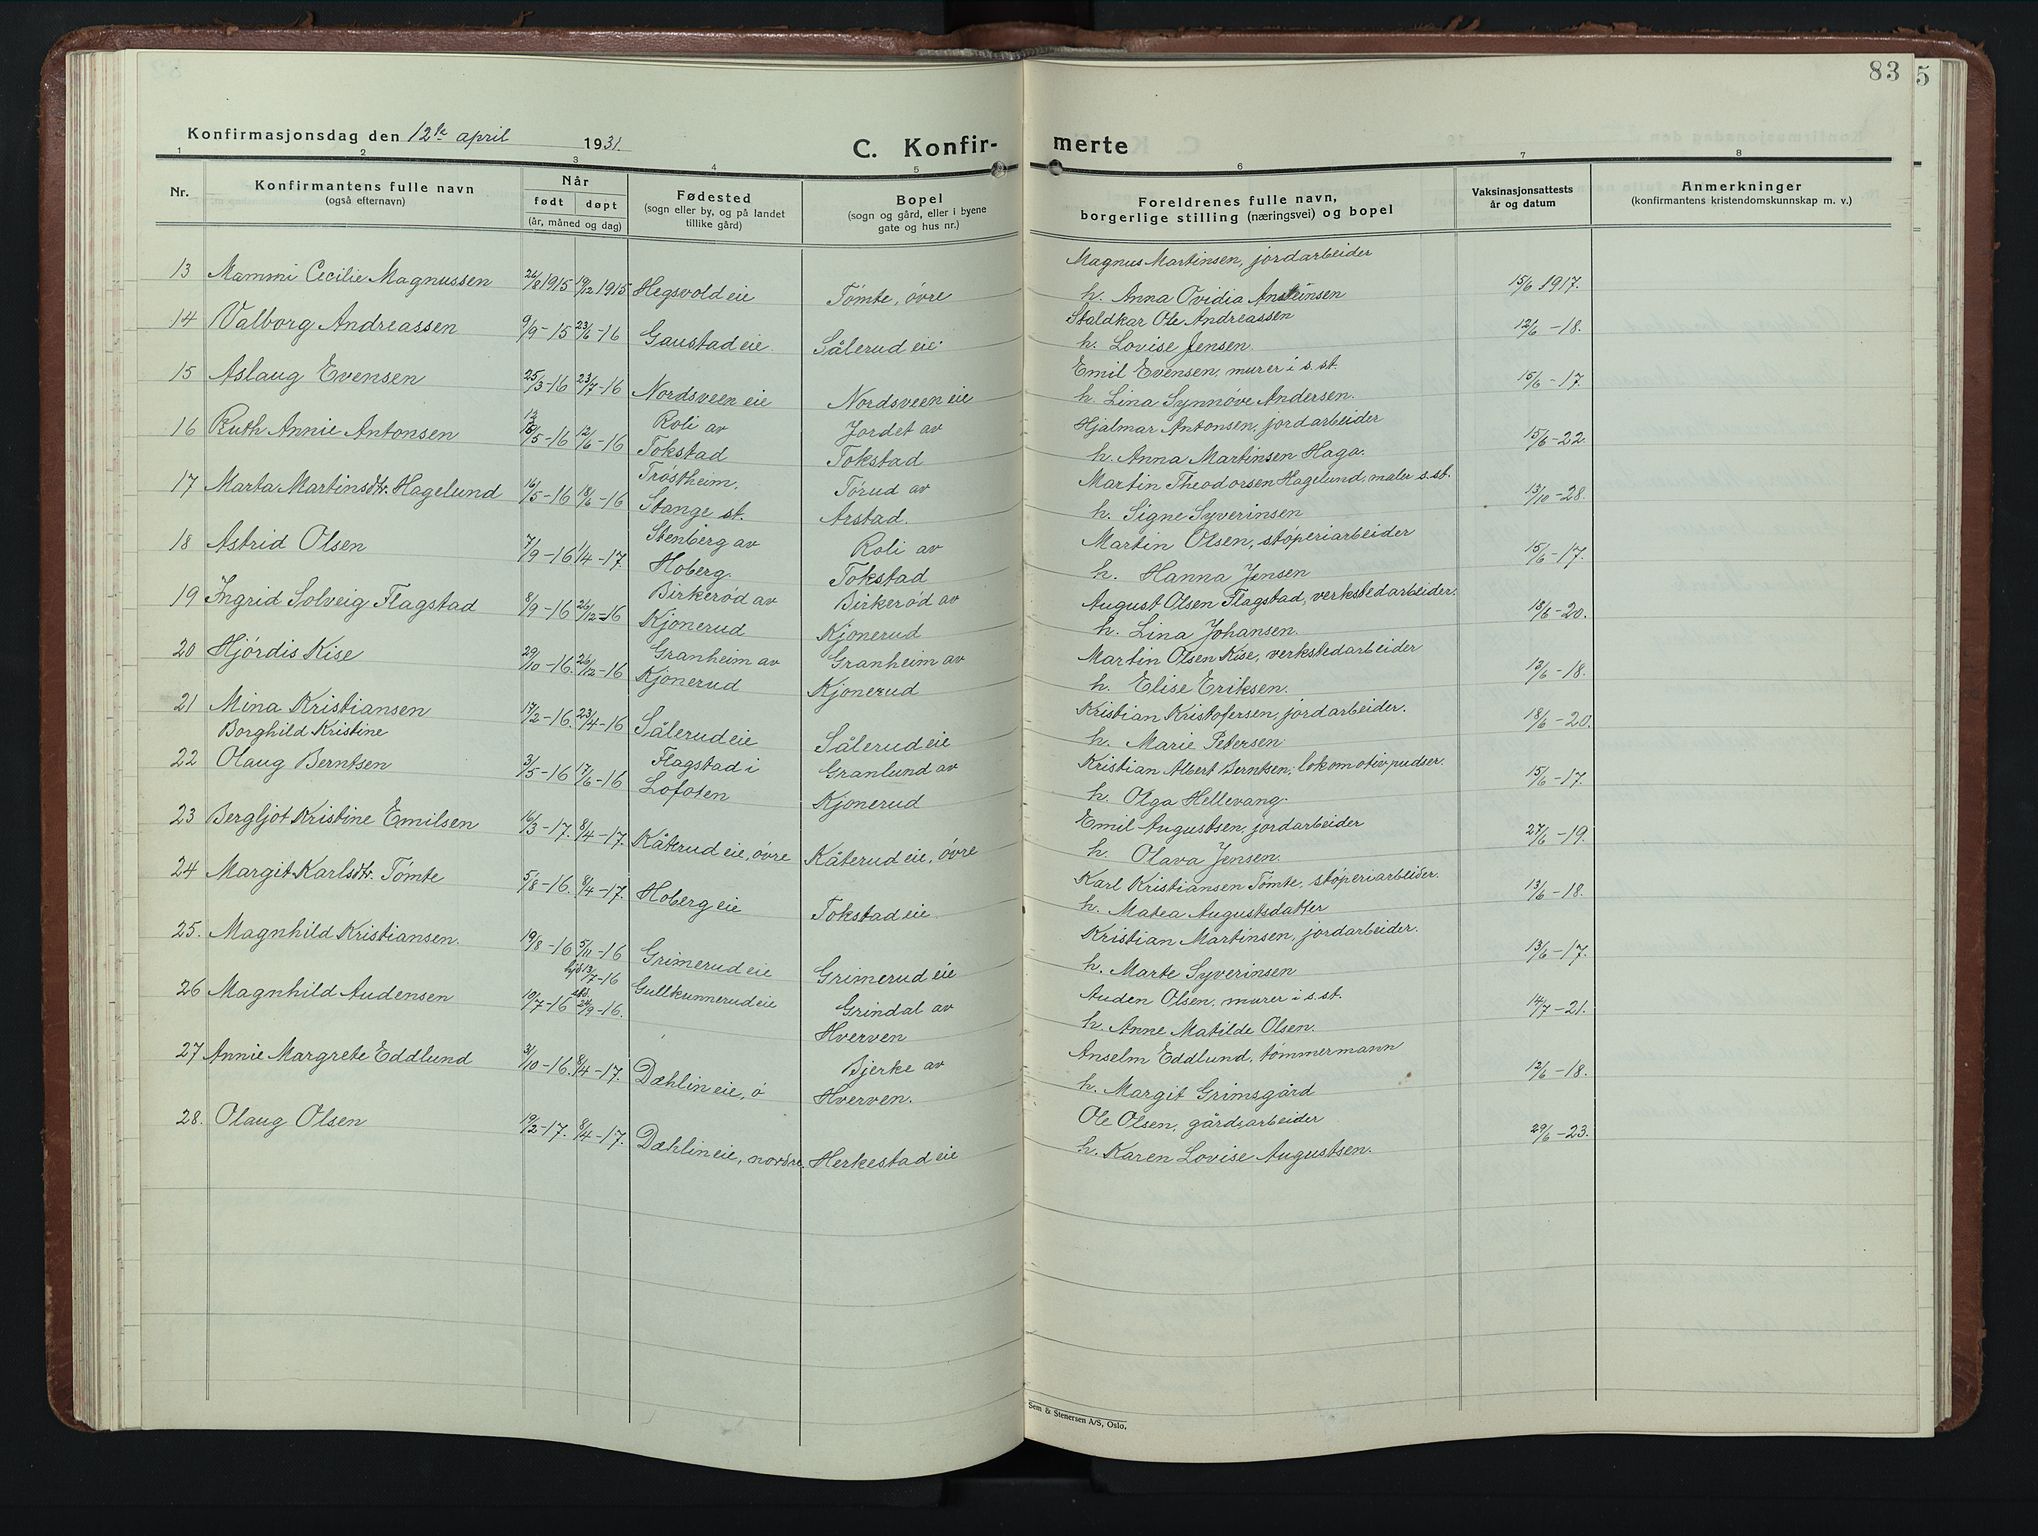 83
5
Konfirmasjonsdag den 12te april 1931.
C. Konfir-merte
1 2 3 4 5 6 7 8
Nr. Konfirmantens fulle navn (også efternavn) Når født døpt (år, måned og dag) Fødested (sogn eller by, og på landet tillike gård) Bopel (sogn og gård, eller i byene gate og hus nr.) Foreldrenes fulle navn, borgerlige stilling (næringsvei) og bopel Vaksinasjonsattests år og datum Anmerkninger (konfirmantens kristendomskunnskap m. v.)
13 Mammi Cecilie Magnussen 26/8 1915 19/12 1915 Hegsvold eie Tømte, øvre Magnus Martinsen, jordarbeider 15/6 1917.
h. Anna Ovidia Ansteinsen
14 Valborg Andreassen 9/9-15 23/6-16 Gaustad eie. Sålerud eie. Staldkar Ole Andreassen 12/6-18.
h. Lovise Jensen.
15 Aslaug Evensen 25/3-16 23/7-16 Nordsveen eie Nordsveen eie Emil Evensen, murer i s. st. 15/6-17.
h. Lina Synnøve Andersen.
16 Ruth Annie Antonsen /5-16 12/6-16 Roli av Tokstad Jordet av Tokstad Hjalmar Antonsen, jordarbeider 15/6-22.
h. Anna Martinsen Haga.
17 Marta Martinsdtr. Hagelund 16/5-16 18/6-16 Trøstheim, Stange st. Tørud av Arstad. Martin Theodorsen Hagelund, maler s. st. 13/10-28.
h. Signe Syverinsen
18 Astrid Olsen 7/9-16 1/4-17. Stenberg av Hoberg. Roli av Tokstad Martin Olsen, støperiarbeider 15/6-17.
h. Hanna Jensen
19 Ingrid Solveig Flagstad 8/9-16 26/12-16 Birkerød av Kjonerud Birkerød av Kjonerud August Olsen Flagstad, verkstedarbeider. 18/6-20.
h. Lina Johansen.
20 Hjørdis Kise 29/10-16. 26/12-16 Granheim av Kjonerud Granheim av Kjonerud Martin Olsen Kise, verkstedarbeider 13/6-18.
h. Elise Eriksen.
21 Mina Kristiansen 17/2-16. 23/4-16 Sålerud eie Sålerud eie Kristian Kristofersen, jordarbeider. 18/6-20.
Borghild Kristine h. Marie Petersen
22 Olaug Berntsen 3/5-16 17/6-16 Flagstad i Lofoten Granlund av Kjonerud Kristian Albert Berntsen, lokomotivpudser. 15/6-17.
h. Olga Hellevang.
23 Bergljot Kristine Emilsen 16/3-17. 8/4-17. Kåterud eie, øvre Kåterud eie, øvre Emil Augustsen, jordarbeider 27/6-19.
h. Olava Jensen.
24 Margit Karlsdtr. Tømte 5/8-16. 8/4-17. Hoberg eie Tokstad eie. Karl Kristiansen Tømte, støperiarbeider. 13/6-18.
h. Matea Augustsdatter
25. Magnhild Kristiansen. 19/8-16 5/11-16 Grimerud eie Grimerud eie Kristian Martinsen, jordarbeider. 13/6-17.
h. Marte Syverinsen
26 Magnhild Audensen 10/7-16 hjd 13/7-16 std. 24/9-16. Gullkunnerud eie Grindal av Hverven Auden Olsen, murer i s. st. 14/7-21.
h. Anne Matilde Olsen.
27 Annie Margrete Eddlund 31/10-16. 8/4-17. Dæhlin eie, ø Bjerke av Hverven. Anselm Eddlund, tømmermann 12/6-18.
h. Margit Grimsgård
28. Olaug Olsen 19/2-17. 8/4-17. Dæhlin eie, nordre. Herkestad eie Ole Olsen, gårdsarbeider 29/6-23.
h. Karen Lovise Augustsen.
Sem & Stenersen A/S, Oslo.